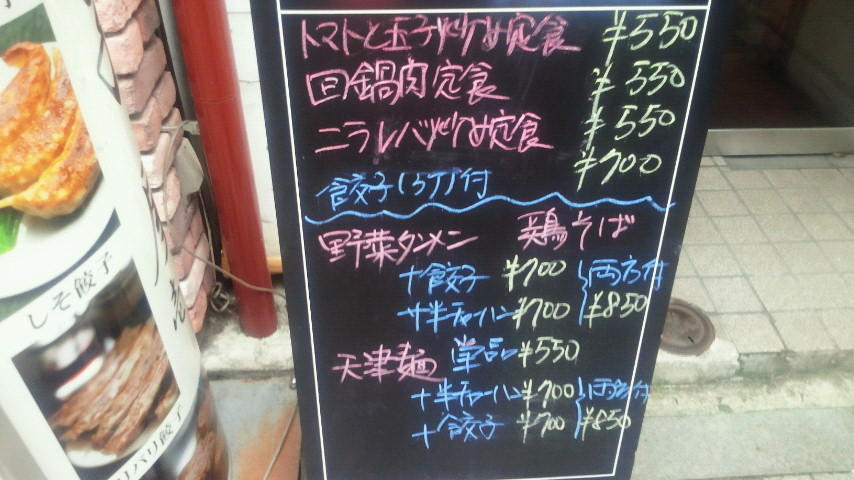 トマトと玉子炒め定食 ¥550
回鍋肉定食 ¥550
ニラレバ炒め定食 ¥550
餃子(3コ)付 ¥700
野菜タンメン 鶏そば
+餃子 ¥700 両方付
+半チャーハン ¥700 ¥850
天津麺 単品 ¥550
+半チャーハン ¥700 両方付
+餃子 ¥700 ¥850
しそ餃子
パリ餃子